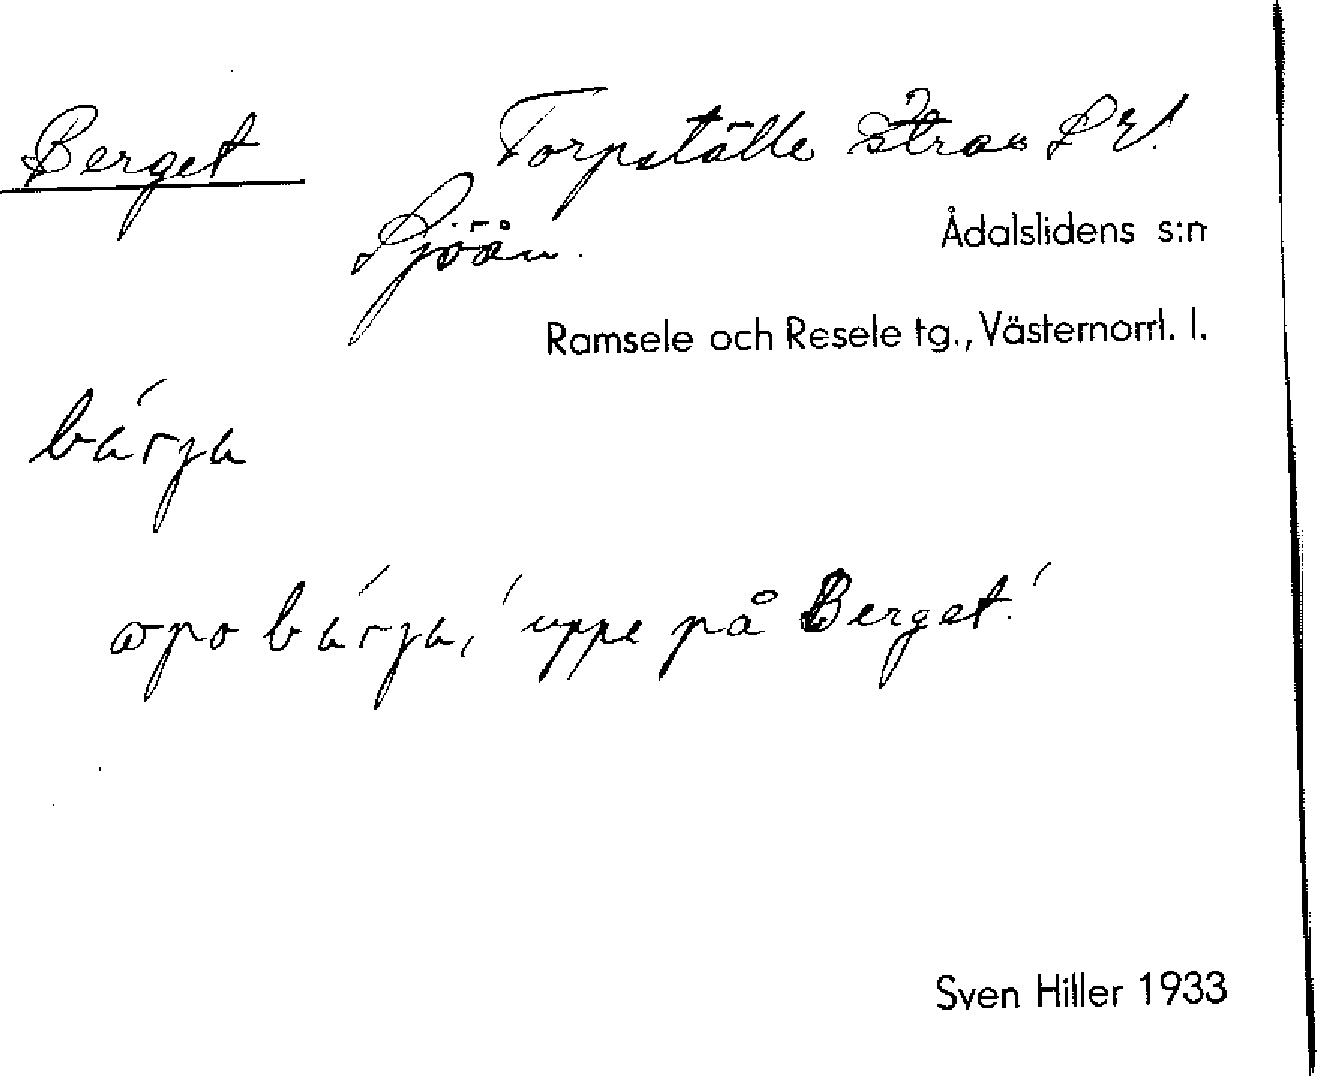 Berget Torpställe strax S V.
Sjöån.
Ådalslidens s:n
Ramsele och Resele tg., Västernorrl. l.
bárja
opo bárja, 'uppe på Berget.'
Sven Hiller 1933